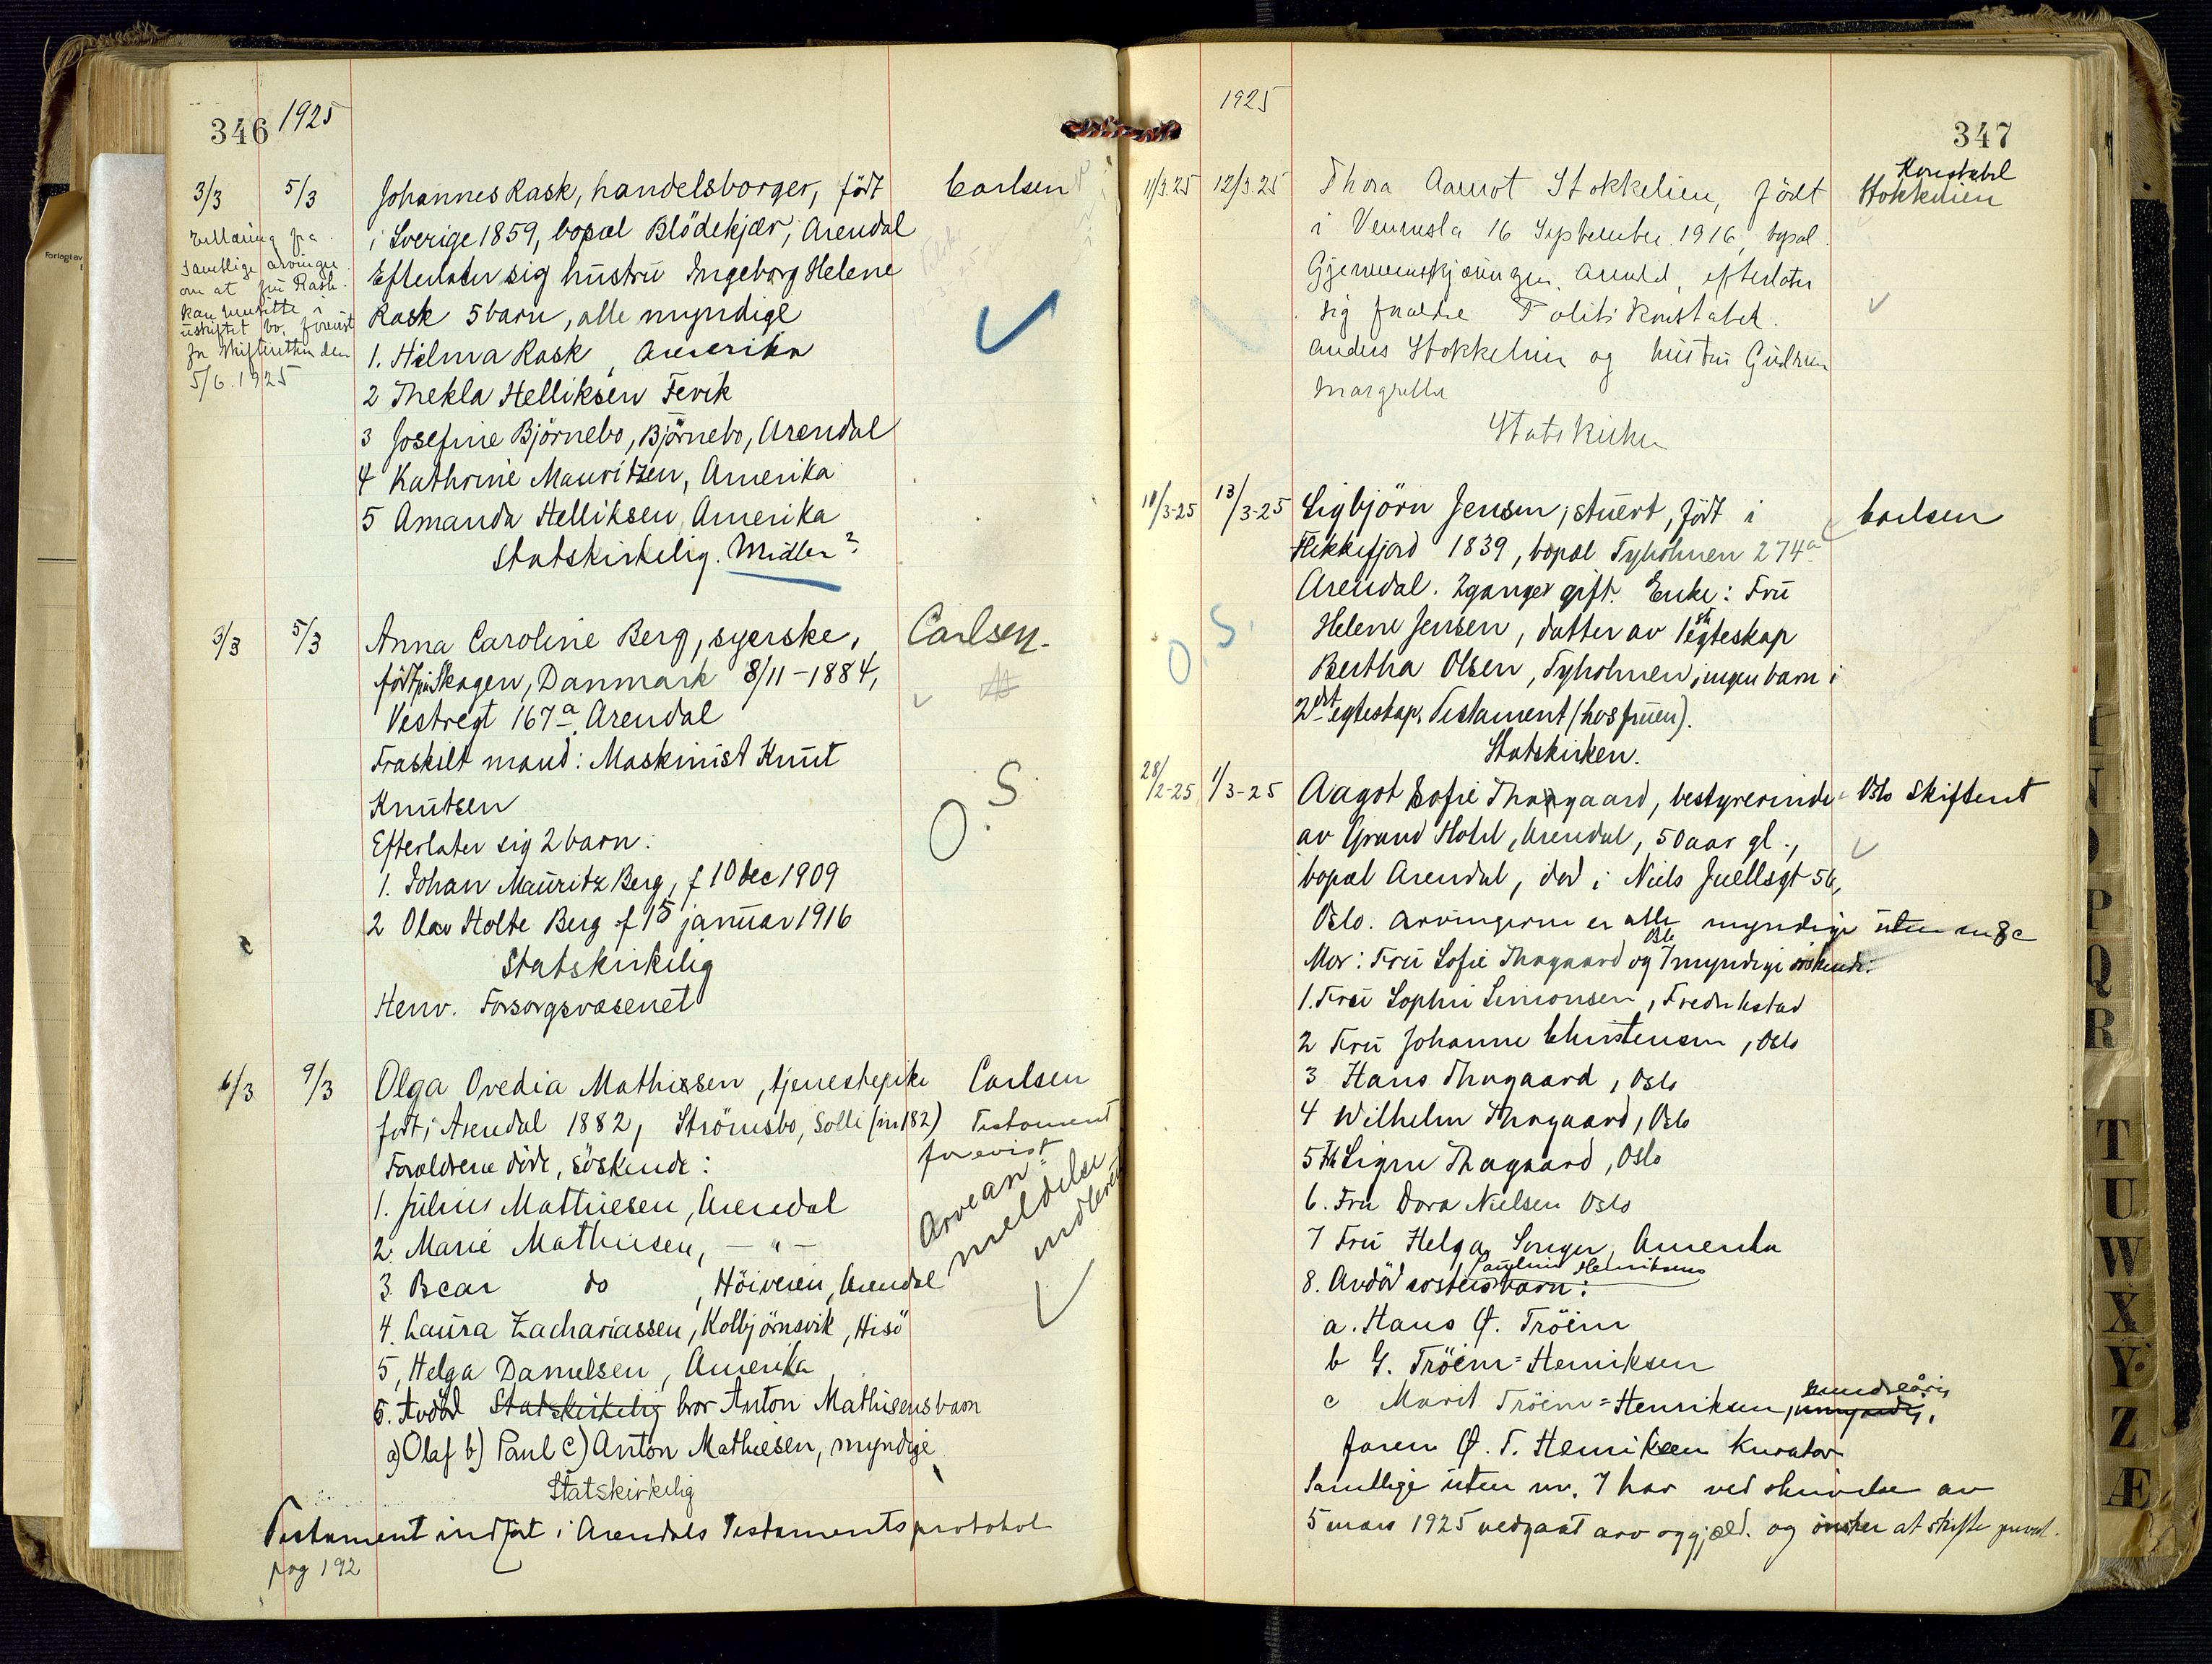 346 1925
3/3 5/3 Johannes Rask, handelsborger, född Carlsen
i Sverige 1859, bopæl Blödekjær, Arendal
Efterlater sig hustru Ingeborg Helene
Rask 5 barn, alle myndige
1. Hilma Rask, Amerika
2 Thekla Helliksen Fevik
3 Josefine Björnebo, Björnebo, Arendal
4 Kathrine Mauritzen, Amerika
5 Amanda Helliksen, Amerika
Statskirkelig. Midler?
Erklæring fra
samtlige arvinger
om at fru Rask
kan hensitte i
uskiftet bo, forevist
for skifteretten den
5/6.1925
3/3 5/3 Anna Caroline Berg, syerske, Carlsen.
født i Skagen, Danmark 8/11-1884,
Vestregt 167a Arendal
Fraskilt mand: Maskinist Knut
Knutsen
Efterlater sig 2 barn:
1. Johan Mauritz Berg, f 10 dec 1909
2 Olav Holte Berg f 15 januar 1916
Statskirkelig
Henv. Forsorgsvæsenet
O.S
6/3 9/3 Olga Ovedia Mathissen, tjenestepike Carlsen
født i Arendal 1882, Strömsbo, Solli (nr 182) Testament
Forældrene döde, söskende: forevist
1. Julius Mathiesen, Arendal
2. Marie Mathiesen, — " —
3. Bear do, Höiveien, Arendal
4. Laura Zachariassen, Kolbjörnsvik, Hisö
5, Helga Danielsen, Amerika
6. Avdöd Statskirkelig bror Anton Mathisens barn
a) Olaf b) Paul c) Anton Mathiesen, myndige
Statskirkelig
Arvean-
meldelse
indlevert
Testament indfört i Arendals Testamentsprotokol
pag 192
1925
347
11/3.25 12/3.25 Thora Aamot Stokkelien, födt Konstabel Stokkelien
i Vennesla 16 September 1916, bopæl
Arendal, efterlater
sig forældre Politikonstabel
Anders Stokkelien og hustru Gudrun
Margrethe
Statskirken
11/3-25 13/3-25 Sigbjörn Jensen, stuert, födt i Carlsen
Flekkefjord 1839, bopæl Tyholmen 274a
Arendal. 2 ganger gift. Enke: Fru
Helene Jensen, datter av 1st egteskap
Bertha Olsen, Tyholmen, ingen barn i
2det egteskap. Testament (hos fruen).
Statskirken.
O.S.
28/2-25 1/3-25 Aagot Sofie Thagaard, bestyrerinde Oslo Skifteret
av Grand Hotel, Arendal, 50 aar gl.,
bopæl Arendal, død i Niels Juellsgt 56,
Oslo. Arvingerne er alle myndige uten nr 8c
Mor: Fru Sofie Thagaard Oslo og 7 myndige söskende:
1. Fru Sophie Simonsen, Fredrikstad
2 Fru Johanne Christensen, Oslo
3 Hans Thagaard, Oslo
4 Wilhelm Thagaard, Oslo
5 Signe Thagaard, Oslo
6. Fru Dora Nielsen Oslo
7 Fru Helga Senger, Amerika
8. Avdöd sösters Pauline Henriksens barn:
a. Hans Ø. Tröim
b G. Tröim=Henriksen
c Marit Tröim=Henriksen, mindreårig umyndig,
faren Ø. T. Henriksen kurator
Samtlige uten nr. 7 har ved skrivelse av
5 mars 1925 vedgaat arv og gjæld. og önsker at skifte privat.
T
U
W
X
Y
Z
Æ
N
O
P
Q
R